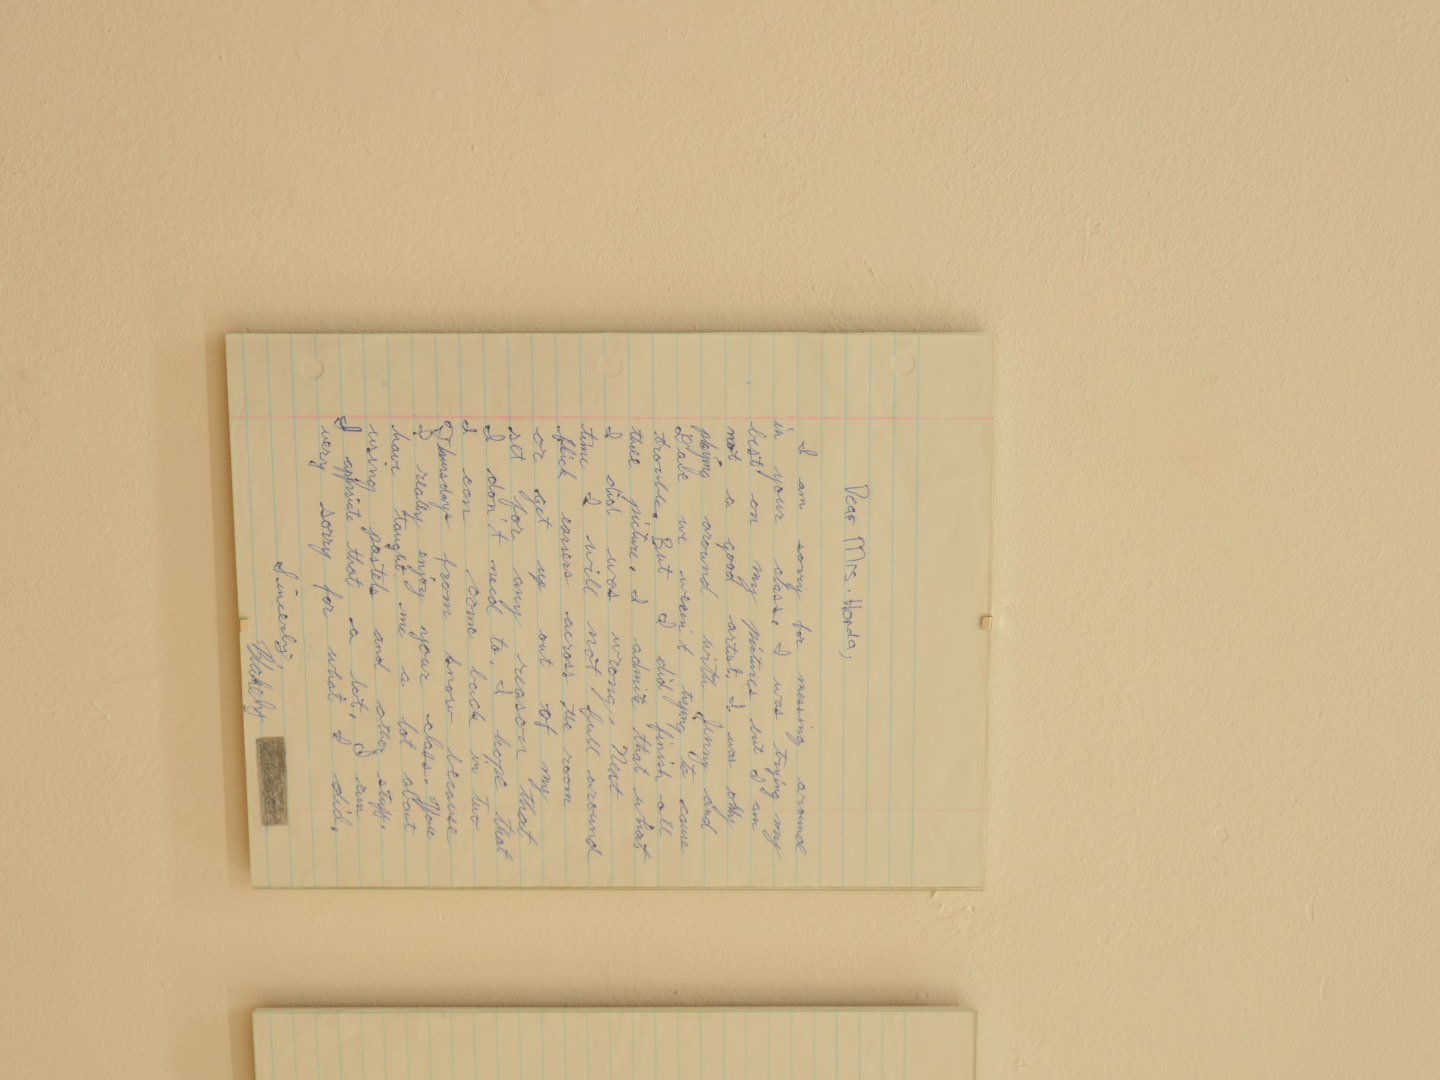 Dear Mrs. Honda,
I am sorry for messing around
in your class. I was trying my
best on my pictures but I am
not a good artist. I was only
playing around with Jenny and
Gabe we weren't trying to cause
trouble. But I did finish all
three picture. I admit that what
I did was wrong. Next
time I will not full around
flick earsers across the room
or get up out of my
set for any reason that
I don't need to. I hope that
I can come back in two
Thursdays from know because
I really enjoy your class. You
have taught me a lot about
using pastels and other stuff.
I appriate that a lot. I am
very sorry for what I did.
Sincerly,